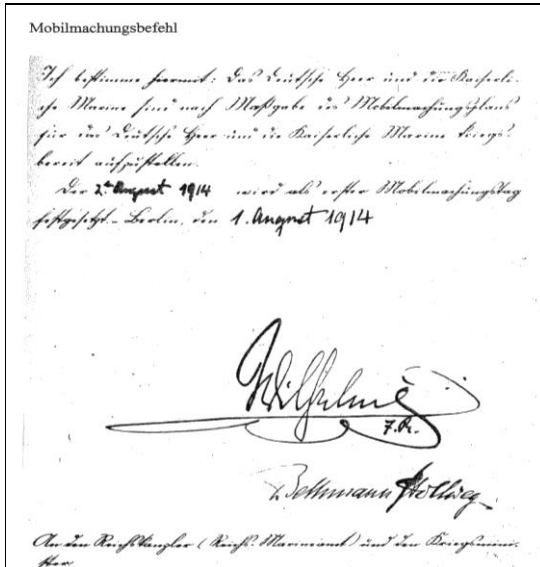 Mobilmachungsbefehl
Ich bestimme hiermit: Das Deutsche Heer und die Kaiserli-
che Marine sind nach Maßgabe des Mobilmachungsplans
für das Deutsche Heer und die Kaiserliche Marine kriegs-
bereit aufzustellen.
Der 2te August 1914 wird als erster Mobilmachungstag
festgesetzt.- Berlin, den 1. August 1914
Wilhelm
I.R.
Bethmann Hollweg
An den Reichskanzler (Reichs-Marineamt) und den Kriegsmini-
ster